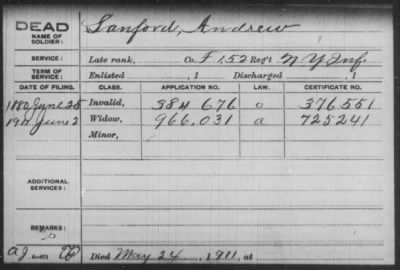 DEAD Sanford, Andrew
NAME OF SOLDIER:
SERVICE: Late rank, Co. F, 152 Reg't N Y Inf.
TERM OF SERVICE: Enlisted , 1 Discharged , 1
DATE OF FILING. CLASS. APPLICATION NO. LAW. CERTIFICATE NO.
1880 June 25 Invalid, 384 676 o 376551
1911 June 2 Widow, 966.031 a 725241
Minor,
ADDITIONAL SERVICES:
REMARKS:
Died May 24, 1911, at